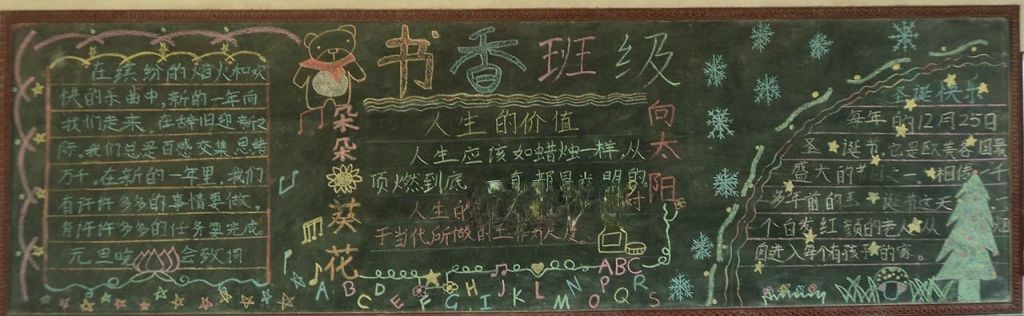 在缤纷的焰火和欢
快的乐曲中,新的一年向
我们走来,在辞旧迎新之
际,我们总是百感交集,思绪
万千,在新的一年里,我们
有许许多多的事情要做,
有许许多多的任务要完成。
元旦晚会致词
书香班级
朵朵葵花
向太阳
人生的价值
人生应该如蜡烛一样,从
顶燃到底,一直都是光明的。
人生的
于当代所做的工作
ABC
A B C D E F G I J K L M N O P Q R S
圣诞快乐
每年的12月25日
圣诞节,它是欧美各国最
盛大的节日之一。相传一千
多年前的圣诞节这天
个白发红颜的老人,从
囱进入每个有孩子的家。